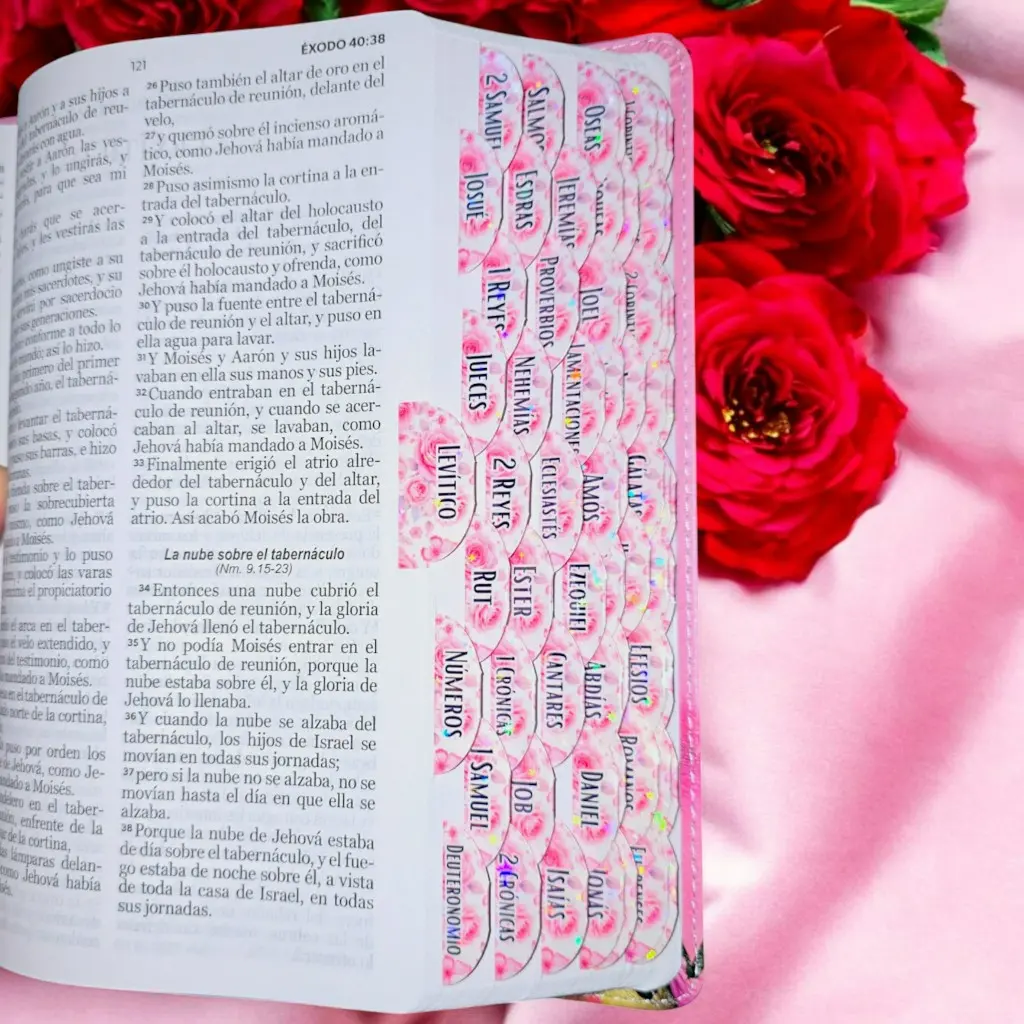 121
ÉXODO 40:38
Aarón y a sus hijos a
tabernáculo de reu-
con agua.
a Aarón las ves-
y lo ungirás, y
para que sea mi
que se acer-
y les vestirás las
como ungiste a su
sacerdotes, y su
por sacerdocio
generaciones.
conforme a todo lo
así lo hizo.
primero del primer
año, el taberná-
levantar el taberná-
sus basas, y colocó
sus barras, e hizo
sobre el taber-
sobrecubierta
como Jehová
Moisés.
y lo puso
y colocó las varas
el propiciatorio
arca en el taber-
velo extendido, y
del testimonio, como
mandado a Moisés.
en el tabernáculo de
norte de la cortina,
puso por orden los
de Jehová, como Je-
a Moisés.
en el taber-
enfrente de la
de la cortina,
lámparas delan-
como Jehová había
26 Puso también el altar de oro en el
tabernáculo de reunión, delante del
velo,
27 y quemó sobre él incienso aromá-
tico, como Jehová había mandado a
Moisés.
28 Puso asimismo la cortina a la en-
trada del tabernáculo.
29 Y colocó el altar del holocausto
a la entrada del tabernáculo, del
tabernáculo de reunión, y sacrificó
sobre él holocausto y ofrenda, como
Jehová había mandado a Moisés.
30 Y puso la fuente entre el taberná-
culo de reunión y el altar, y puso en
ella agua para lavar.
31 Y Moisés y Aarón y sus hijos la-
vaban en ella sus manos y sus pies.
32 Cuando entraban en el taberná-
culo de reunión, y cuando se acer-
caban al altar, se lavaban, como
Jehová había mandado a Moisés.
33 Finalmente erigió el atrio alre-
dedor del tabernáculo y del altar,
y puso la cortina a la entrada del
atrio. Así acabó Moisés la obra.
La nube sobre el tabernáculo
(Nm. 9.15-23)
34 Entonces una nube cubrió el
tabernáculo de reunión, y la gloria
de Jehová llenó el tabernáculo.
35 Y no podía Moisés entrar en el
tabernáculo de reunión, porque la
nube estaba sobre él, y la gloria de
Jehová lo llenaba.
36 Y cuando la nube se alzaba del
tabernáculo, los hijos de Israel se
movían en todas sus jornadas;
37 pero si la nube no se alzaba, no se
movían hasta el día en que ella se
alzaba.
38 Porque la nube de Jehová estaba
de día sobre el tabernáculo, y el fue-
go estaba de noche sobre él, a vista
de toda la casa de Israel, en todas
sus jornadas.
LEVÍTICO
NÚMEROS
DEUTERONOMIO
JOSUÉ
JUECES
RUT
1 SAMUEL
2 SAMUEL
1 REYES
2 REYES
1 CRÓNICAS
2 CRÓNICAS
ESDRAS
NEHEMÍAS
ESTER
JOB
SALMO
PROVERBIOS
ECLESIASTÉS
CANTARES
ISAÍAS
JEREMÍAS
LAMENTACIONES
EZEQUIEL
DANIEL
OSEAS
JOEL
AMOS
ABDÍAS
JONAS
ROMANOS
2 CORINTI
GÁLATAS
EFESIOS